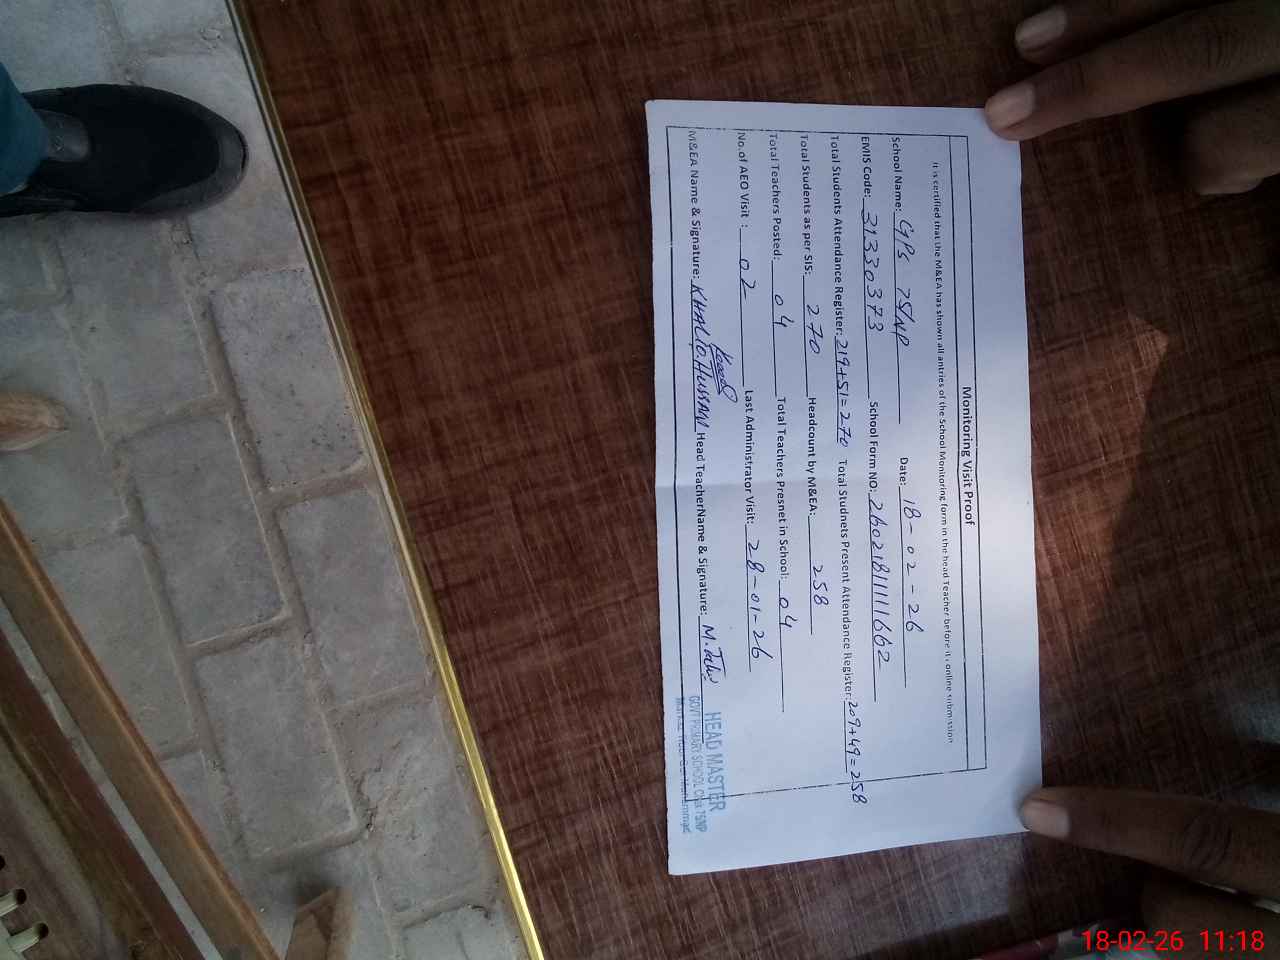 Monitoring Visit Proof
It is certified that the M&EA has shown all antries of the School Monitoring form in the head Teacher before it online submission
School Name: GPS 75/NP Date: 18-02-26
EMIS Code: 31330373 School Form NO: 260218111111662
Total Students Attendance Register: 219+51=270 Total Studnets Present Attendance Register: 209+49=258
Total Students as per SIS: 270 Headcount by M&EA: 258
Total Teachers Posted: 04 Total Teachers Presnet in School: 04
No. of AEO Visit : 02 Last Administrator Visit: 28-01-26
M&EA Name & Signature: KHALID.HUSSAIN Head TeacherName & Signature: M. Tahir
HEAD MASTER
GOVT PRIMARY SCHOOL Chak 75NP
18-02-26 11:18